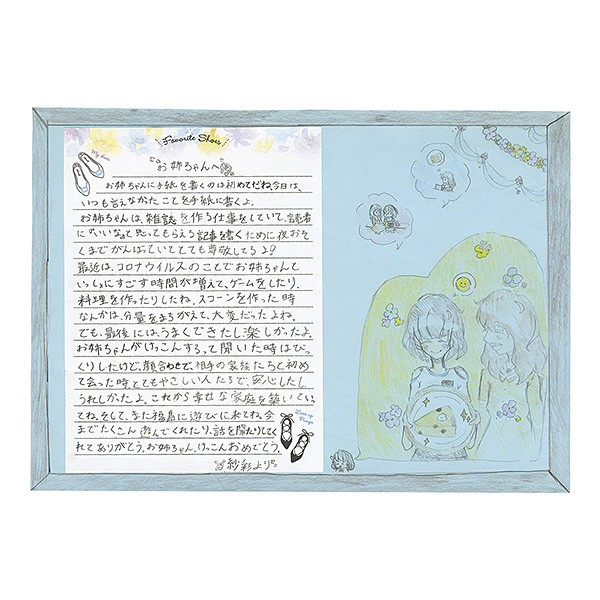 Favorite Shoes
My shoes
お姉ちゃんへ
お姉ちゃんに手紙を書くのは初めてだね。今日は、
いつも言えなかったことを手紙に書くよ。
お姉ちゃんは、雑誌を作る仕事をしていて、読者
に「いいな」と思ってもらえる記事を書くために夜おそ
くまでがんばっていてとても尊敬してるよ!
最近は、コロナウイルスのことでお姉ちゃんと
いっしょにすごす時間が増えて、ゲームをしたり、
料理を作ったりしたね。スコーンを作った時
なんかは、分量をまちがえて、大変だったよね。
でも、最後には、うまくできたし楽しかったよ。
お姉ちゃんがけっこんするって聞いた時はびっ
くりしたけど、顔合わせで、相手の家族たちと初め
て会った時とてもやさしい人たちで、安心したし
うれしかったよ。これから幸せな家庭を築いてい
てね。そして、また福島に遊びに来てね。今
までたくさん遊んでくれたり、話を聞いたりしてく
れてありがとう。お姉ちゃん、けっこんおめでとう。
紗彩より
Lace up
Pumps